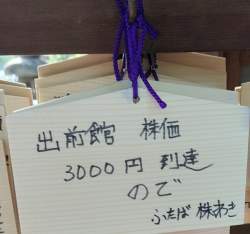 出前館 株価
3000円 到達
ので
ふたば 株わき